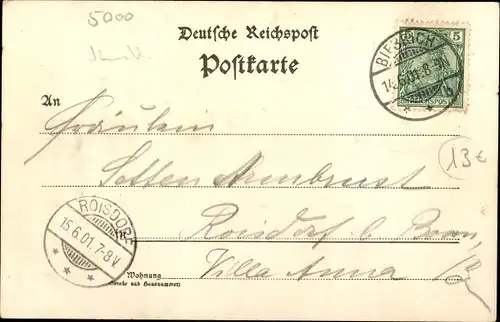 5000
Deutsche Reichspost
Postkarte
BIEBRICH
14.6.01.8-9N
5
An
Fräulein
Armbrust
Roisdorf b. Bonn
Villa Anna
13€
ROISDORF
15.6.01.7-8V
in
Wohnung
(Straße und Hausnummer)